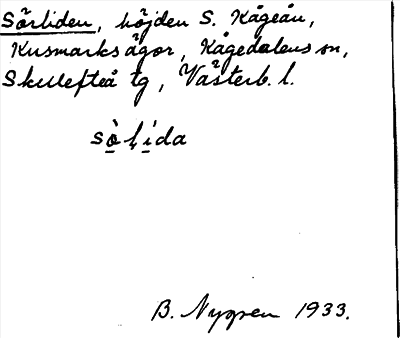 Sörliden, höjden S. Kågeån,
Kusmarks ägor, Kågedalens sn,
Skellefteå tg, Västerb. l.
sò̠l̥i̠da
B. Nygren 1933.